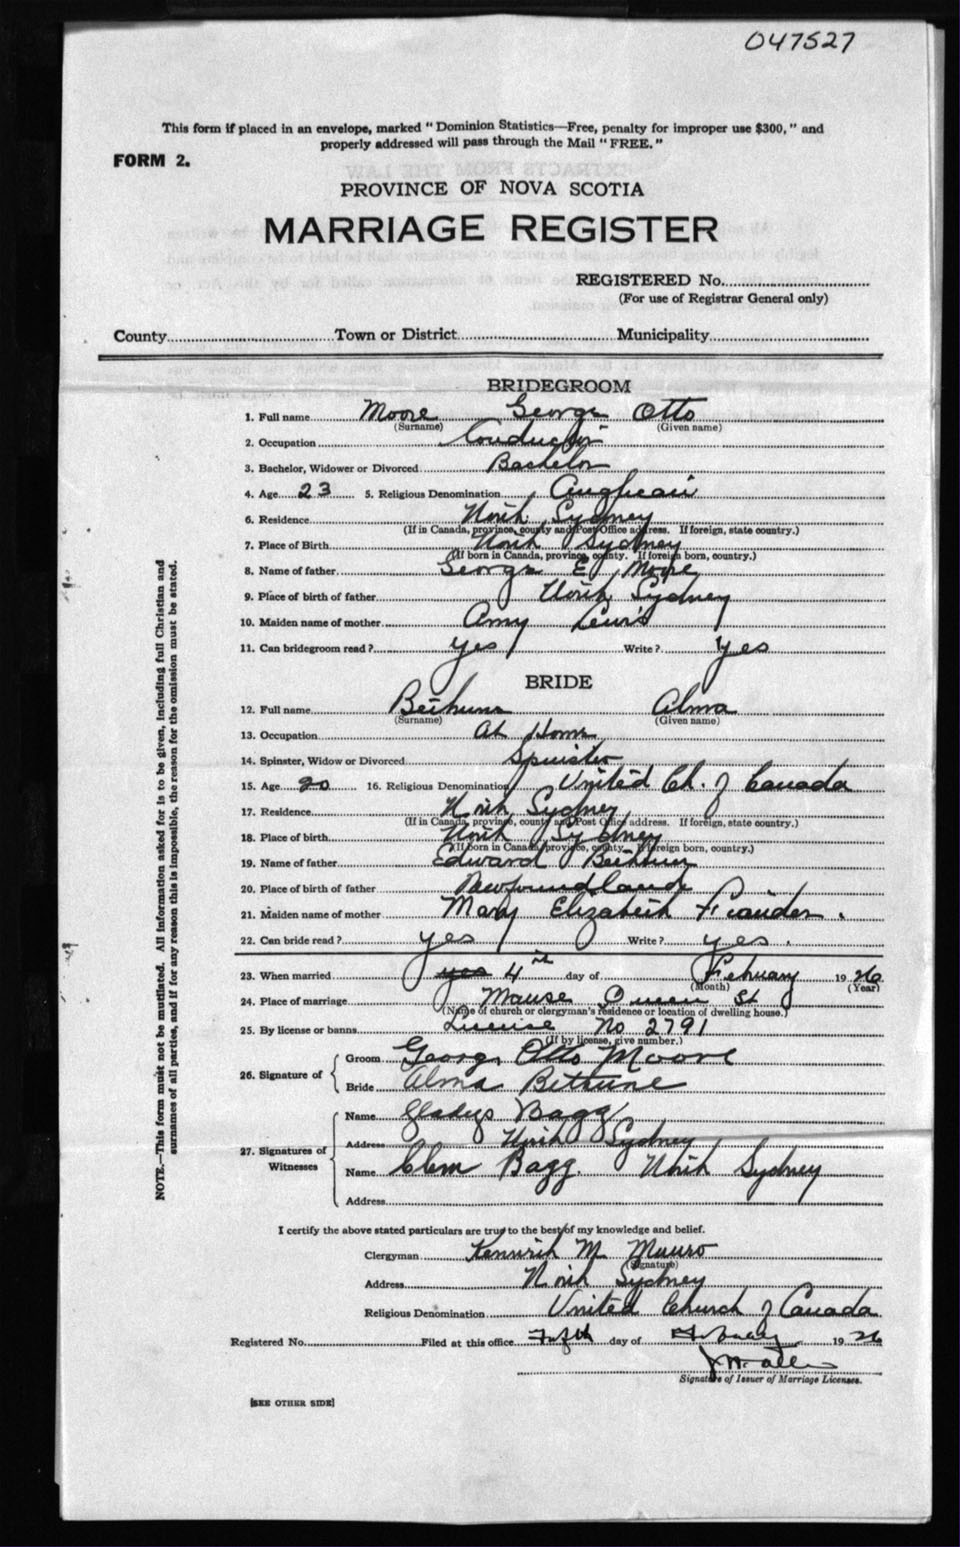 047527
This form if placed in an envelope, marked "Dominion Statistics—Free, penalty for improper use $300," and
properly addressed will pass through the Mail "FREE."
FORM 2.
PROVINCE OF NOVA SCOTIA
MARRIAGE REGISTER
REGISTERED No.
(For use of Registrar General only)
County Town or District Municipality
BRIDEGROOM
1. Full name Moore George Otto
(Surname) (Given name)
2. Occupation Conductor
3. Bachelor, Widower or Divorced Bachelor
4. Age 23 5. Religious Denomination Anglican
6. Residence North Sydney
(If in Canada, province, county and Post Office address. If foreign, state country.)
7. Place of Birth North Sydney
(If born in Canada, province, county. If foreign born, country.)
8. Name of father George E Moore
9. Place of birth of father North Sydney
10. Maiden name of mother Amy Lewis
11. Can bridegroom read? yes Write? yes
BRIDE
12. Full name Bethune Alma
(Surname) (Given name)
13. Occupation At Home
14. Spinster, Widow or Divorced Spinster
15. Age 20 16. Religious Denomination United Ch. of Canada
17. Residence North Sydney
(If in Canada, province, county and Post Office address. If foreign, state country.)
18. Place of birth North Sydney
(If born in Canada, province, county. If foreign born, country.)
19. Name of father Edward Bethune
20. Place of birth of father Newfoundland
21. Maiden name of mother Mary Elizabeth
22. Can bride read? yes Write? yes.
23. When married yes 4th day of February 1926
(Month) (Year)
24. Place of marriage Manse Queen St
(Name of church or clergyman's residence or location of dwelling house.)
25. By license or banns License No 2791
(If by license, give number.)
26. Signature of Groom George Otto Moore
Bride Alma Bethune
27. Signatures of Witnesses Name Gladys Bagg
Address North Sydney
Name Clem Bagg. North Sydney
Address
I certify the above stated particulars are true to the best of my knowledge and belief.
Clergyman Kenneth M Munro
(Signature)
Address North Sydney
Religious Denomination United Church of Canada
Registered No. Filed at this office Fifth day of February 1926
Signature of Issuer of Marriage Licenses.
[SEE OTHER SIDE]
NOTE.—This form must not be mutilated. All information asked for is to be given, including full Christian and
surnames of all parties, and if for any reason this is impossible, the reason for the omission must be stated.